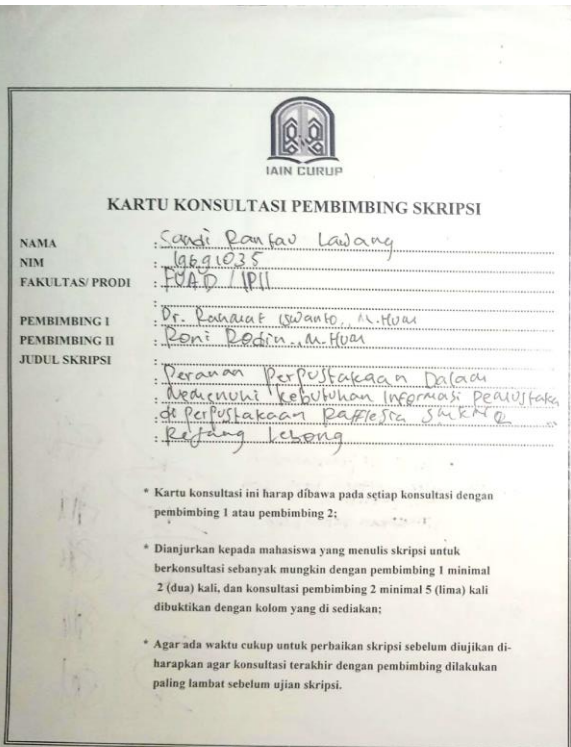 IAIN CURUP
KARTU KONSULTASI PEMBIMBING SKRIPSI
NAMA : Sandi Rantau Lawang
NIM : 19691035
FAKULTAS/ PRODI : FUAD / IPII
:
PEMBIMBING I : Dr. Rahmat Iswanto., M.Hum
PEMBIMBING II : Roni Rodin., M.Hum
JUDUL SKRIPSI :
: Peranan Perpustakaan Dalam
: Memenuhi Kebutuhan Informasi Pemustaka
: di Perpustakaan Rafflesia
: Rejang Lebong
* Kartu konsultasi ini harap dibawa pada setiap konsultasi dengan
pembimbing 1 atau pembimbing 2;
* Dianjurkan kepada mahasiswa yang menulis skripsi untuk
berkonsultasi sebanyak mungkin dengan pembimbing 1 minimal
2 (dua) kali, dan konsultasi pembimbing 2 minimal 5 (lima) kali
dibuktikan dengan kolom yang di sediakan;
* Agar ada waktu cukup untuk perbaikan skripsi sebelum diujikan di-
harapkan agar konsultasi terakhir dengan pembimbing dilakukan
paling lambat sebelum ujian skripsi.